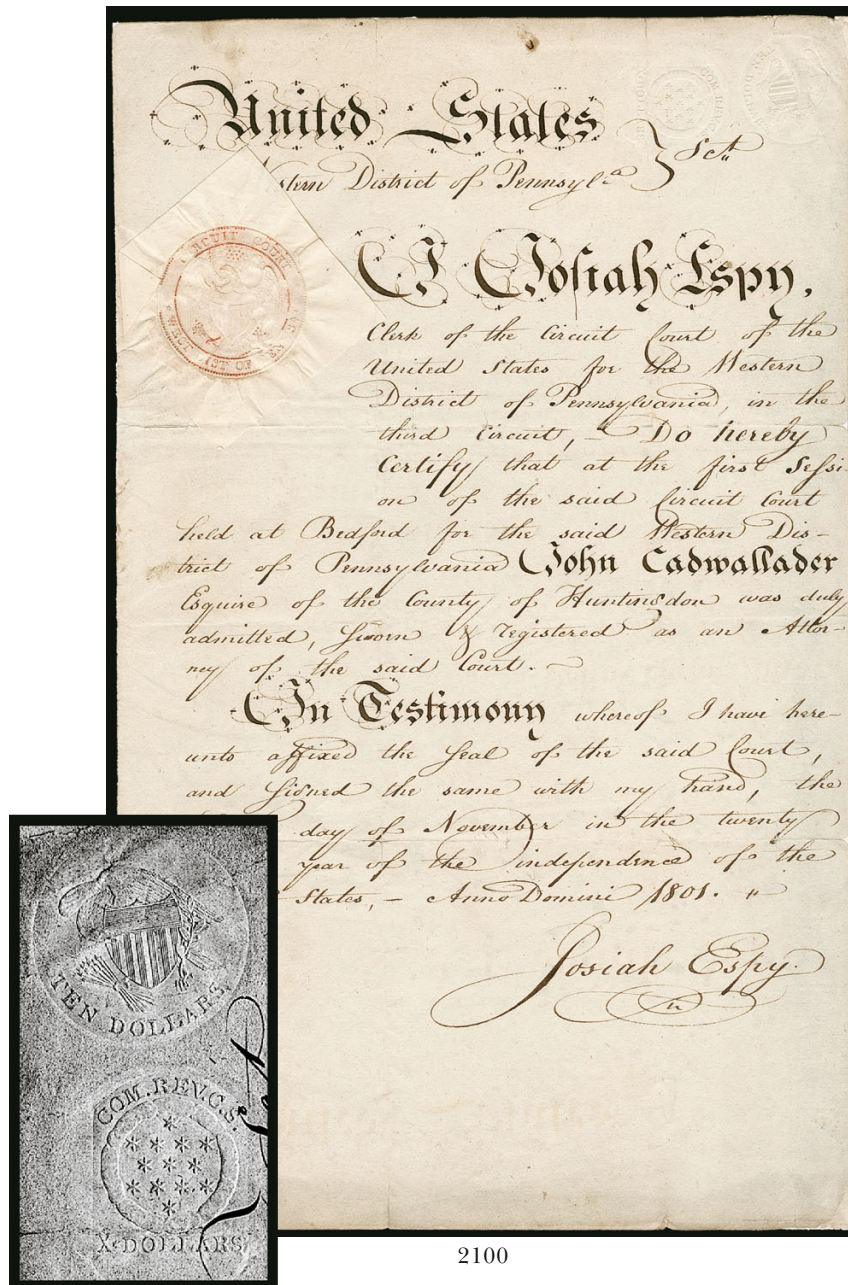 United States
Western District of Pennsylª } Sct
I Josiah Espy,
Clerk of the Circuit Court of the
United States for the Western
District of Pennsylvania, in the
third Circuit, – Do hereby
Certify that at the first Sessi-
on of the said Circuit Court
held at Bedford for the said Western Dis-
trict of Pennsylvania John Cadwallader
Esquire of the County of Huntingdon was duly
admitted, sworn & registered as an Attor-
ney of the said Court. –
In Testimony whereof I have here-
unto affixed the Seal of the said Court,
and signed the same with my hand, the
day of November in the twenty
year of the independence of the
States, – Anno Domini 1801. "
Josiah Espy.
CIRCUIT COURT
WEST OF
TEN DOLLARS.
COM. REV. C. S.
X. DOLLARS
2100